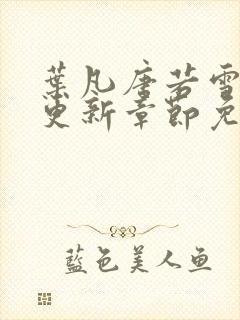 葉凡唐若雪
更新章節免
藍色美人鱼